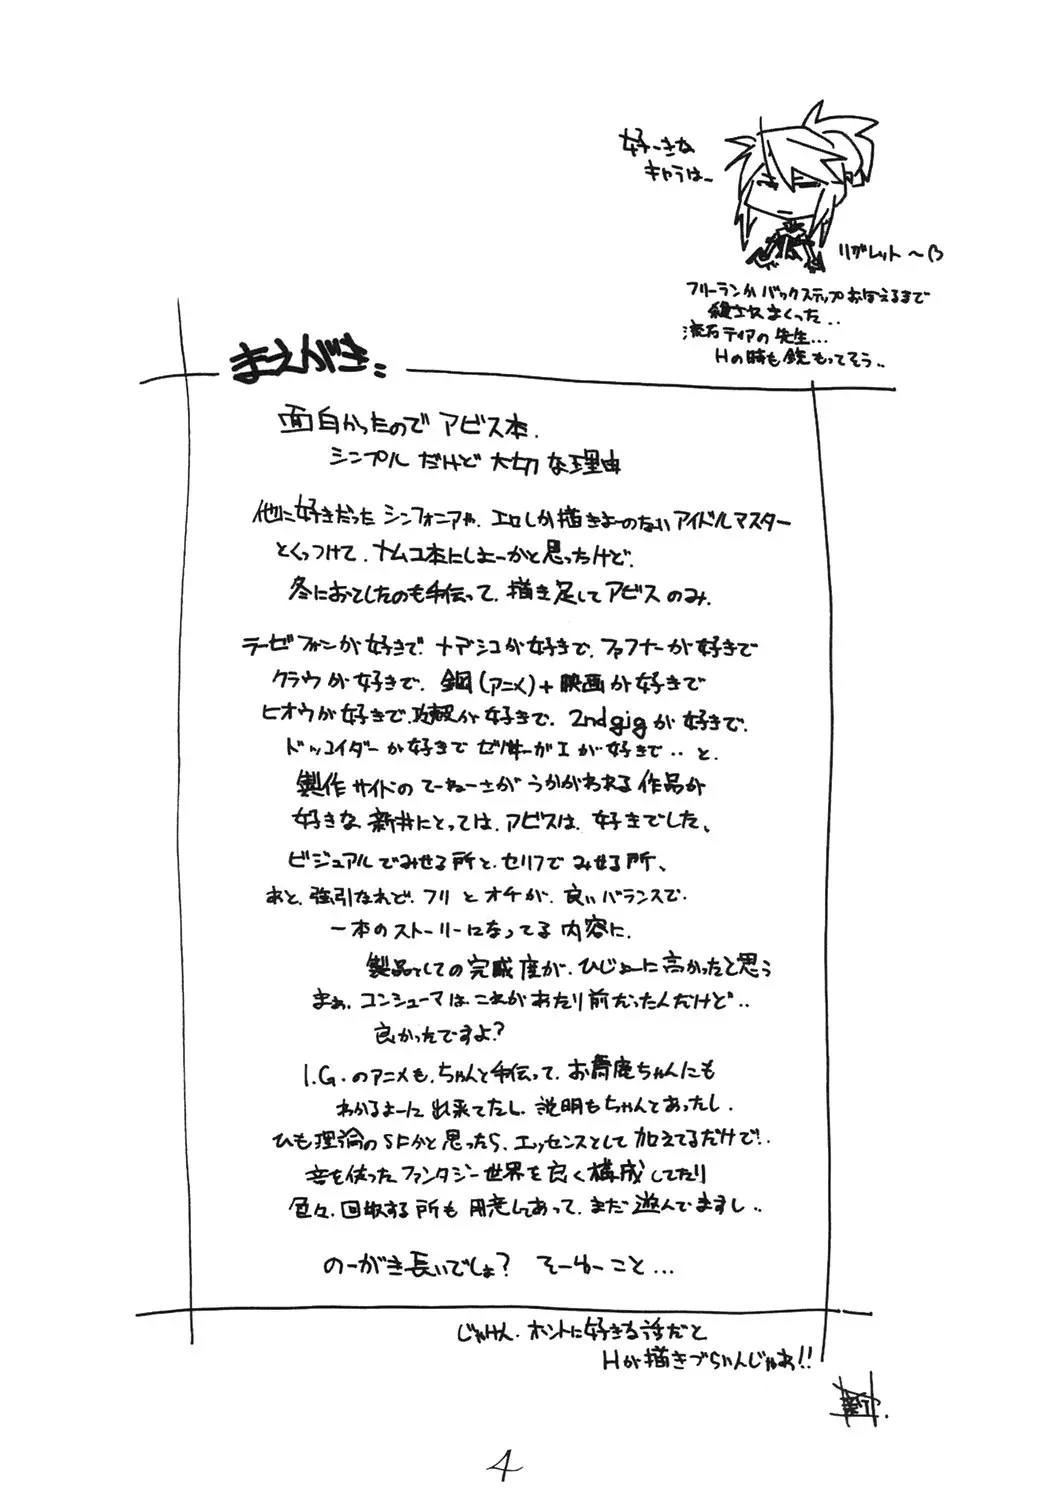 好ーきな
キャラはー
リグレット～β
フリーランかバックステップおぼえるまで
殺されまくった..
流石ティアの先生...
Hの時も銃もってそう..
まえがき..
面白かったので アビス本.
シンプルだけど大切な理由
他に好きだった シンフォニアや、エロしか描きよーのないアイドルマスター
とくっつけて、ナムコ本にしよーかと思ったけど.
冬におとしたのも手伝って、描き足してアビスのみ.
ラーゼフォンが好きで、ナデシコが好きで、ファフナーが好きで
クラウが好きで、鋼(アニメ)+映画が好きで
ヒオウが好きで、攻殻が好きで、2ndgigが好きで、
ドッコイダーが好きで ゼノサーガIが好きで‥と、
製作サイドのてーねーさが うかがわれる作品が
好きな新井にとっては、アビスは、好きでした、
ビジュアルでみせる所と、セリフでみせる所、
あと、強引なれど、フリとオチが、良いバランスで、
一本のストーリーになってる内容に、
製品としての完成度が、ひじょーに高かったと思う
まぁ、コンシューマはこれがあたり前だったんだけど‥
良かったですよ?
I.G.のアニメも、ちゃんと手伝って、お寿庵ちゃんにも
わかるよーに出来てたし、説明もちゃんとあったし、
ひも理論のSFかと思ったら、エッセンスとして加えてるだけで‥
音を使ったファンタジー世界を良く構成してたり
色々、回収する所も用意してあって、まだ遊んでますし‥
のーがき長いでしょ? そーゆーこと...
じゃけん、ホントに好きな話だと
Hが描きづらいんじゃあ!!
4